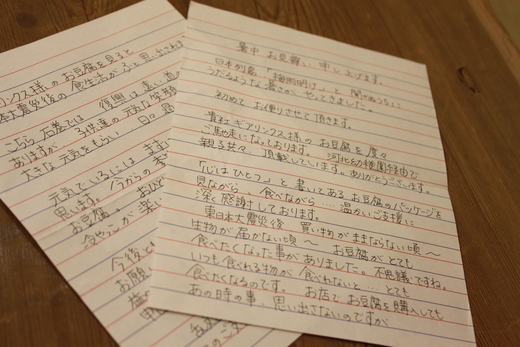 暑中 お見舞い 申し上げます。
日本列島 "梅雨明け" と 聞かぬうちに
うだるような 暑さが やってきました。
初めて お便りさせて頂きます。
貴社 ギアリンクス様の お豆腐を 度々
ご馳走になっております。 河北幼稚園経由で
親子共々 頂戴しています。ありがとうございます。
「心はひとつ」と 書いてある お豆腐のパッケージを
見ながら、食べながら … 温かいご支援に
深く 感謝しております。
東日本大震災後 買い物が ままならない頃〜
生物が 届かない頃 〜 お豆腐が とても
食べたくなった事が ありました。不思議ですね。
いつも 食べれる物が 食べれないと … とても
食べたくなるのです。 お店で お豆腐を 購入しても
あの時の事、思い出さないのですが
リンクス様の お豆腐を見ると
震災後の 食生活が ふと 思い出され
こちら 石巻では 復興は 遠い
ありますが… 子供達の 元気な 笑顔
大きな 元気をもらい 日々
元気でいるには まず
思います。 今からの
お豆腐。
今後とも
お願い